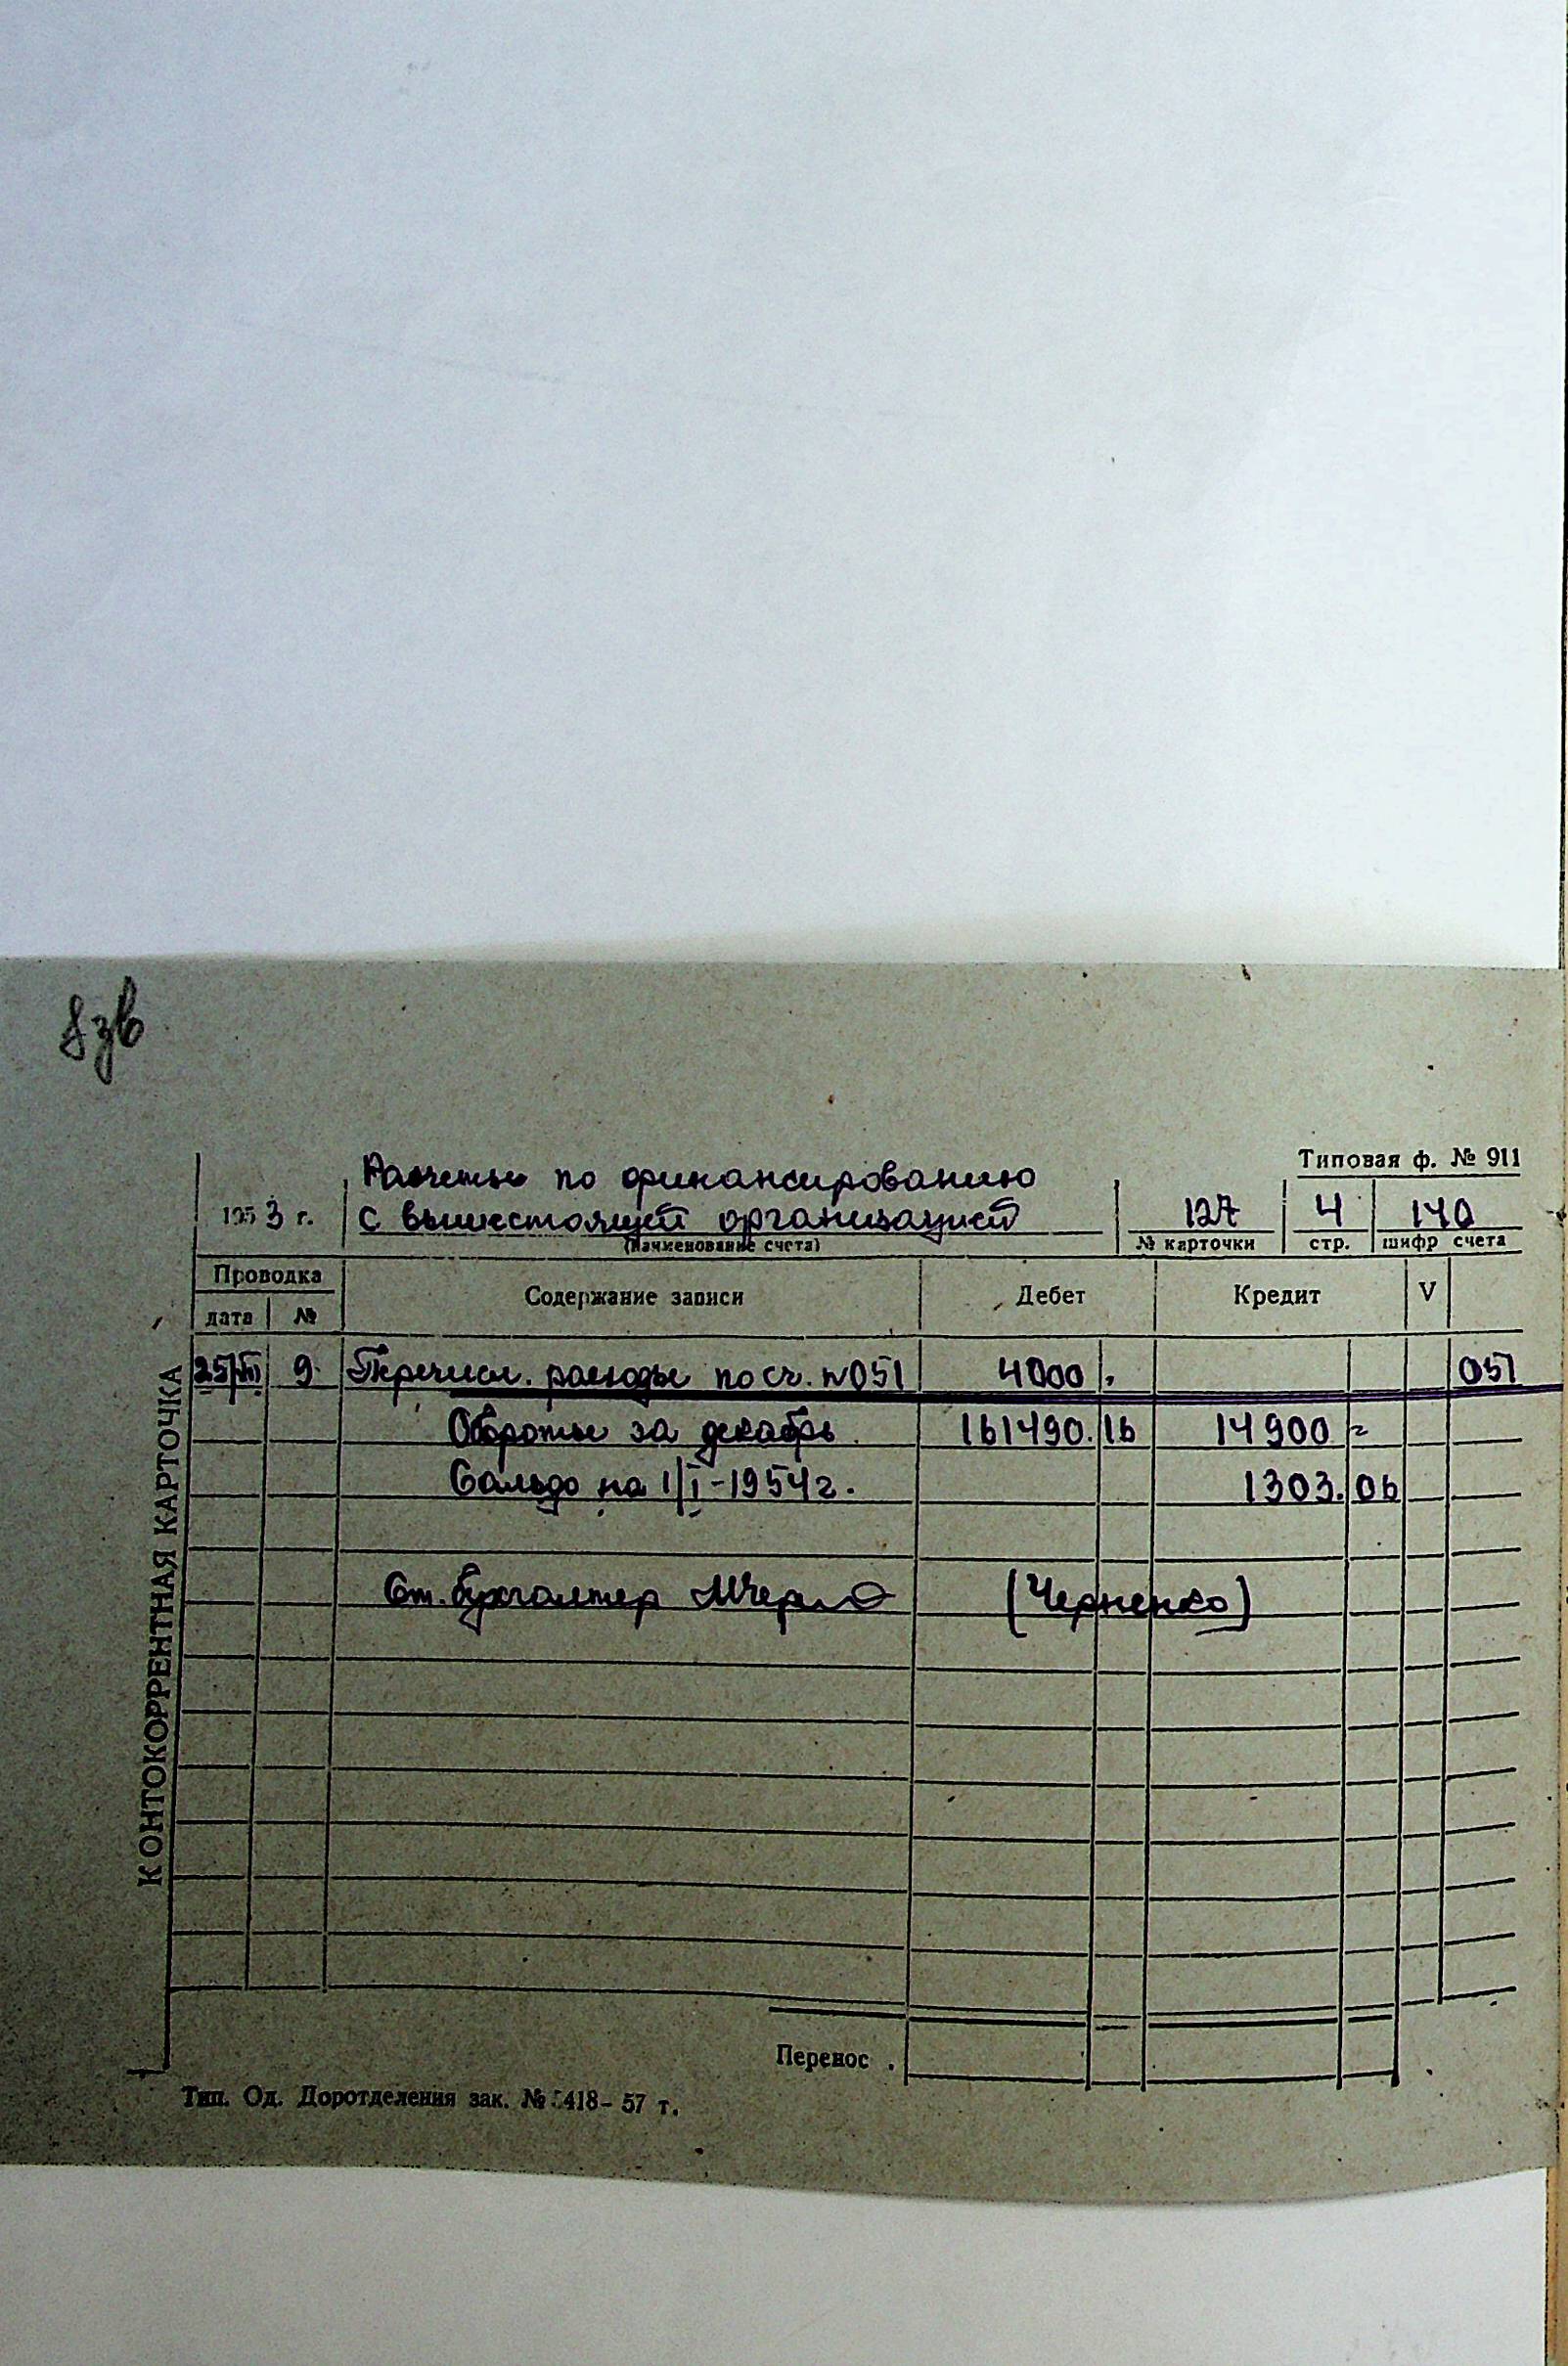 8зв
Типовая ф. № 911
Расчеты по финансированию
1953 г. с вышестоящей организацией 127 4 140
(Наименование счета) № карточки стр. шифр счета
Проводка Содержание записи Дебет Кредит V
дата №
25/XII 9. Перечисл. расходы по сч. №051 4000 - 051
Обороты за декабрь 161490.16 14900 =
Сальдо на 1/I-1954г. 1303.06
Ст. бухгалтер (Черненко)
КОНТОКОРРЕНТНАЯ КАРТОЧКА
Перенос .
Тип. Од. Доротделения зак. № 418- 57 т.